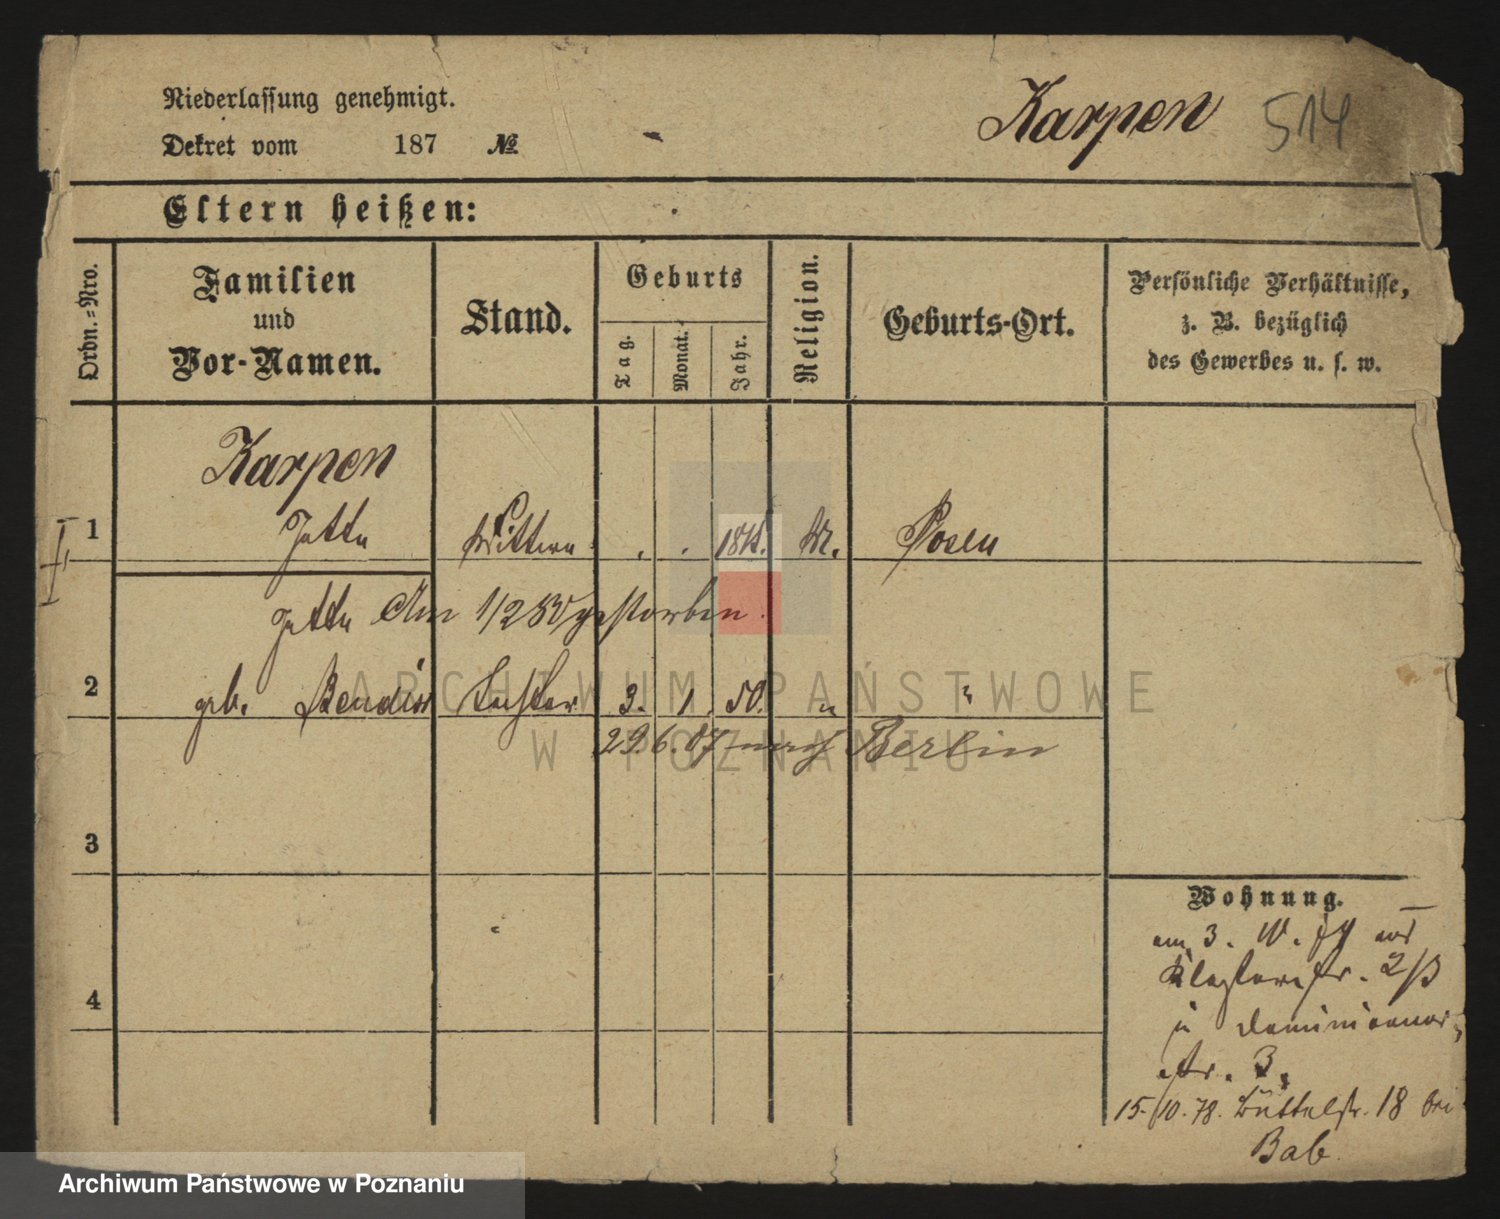 Niederlassung genehmigt.
Dekret vom 187 №
Karpen 514
Eltern heißen:
Ordn.=Nro.
Familien
und
Vor-Namen.
Stand.
Geburts
Tag.
Monat.
Jahr.
Religion.
Geburts-Ort.
Persönliche Verhältnisse,
z. B. bezüglich
des Gewerbes u. s. w.
Karpen
1 Wittwe M. Posen
gestorben
2 geb. Tochter 3. 1. 50. "
29.6.87 nach Berlin
3
4
Wohnung.
am 3. aus
Klosterstr.
in Dominicaner-
str. 3.
15.10.78. Büttelstr. 18 bei
Bab.
ARCHIWUM PAŃSTWOWE
W POZNANIU
Archiwum Państwowe w Poznaniu